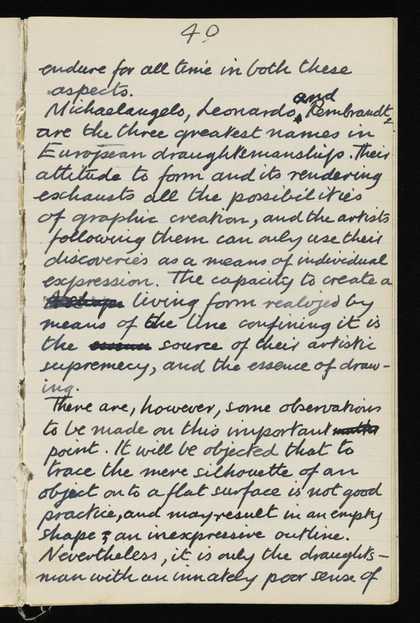 40
endure for all time in both these
aspects.
Michaelangelo, Leonardo, and Rembrandt,
are the three greatest names in
European draughtsmanship. Their
attitude to form and its rendering
exhausts all the possibilities
of graphic creation, and the artists
following them can only use their
discoveries as a means of individual
expression. The capacity to create a
living form realized by
means of the line confining it is
the source of their artistic
supremacy, and the essence of draw-
ing.
There are, however, some observations
to be made on this important
point. It will be objected that to
trace the mere silhouette of an
object onto a flat surface is not good
practice, and may result in an empty
shape & an inexpressive outline.
Nevertheless, it is only the draughts-
man with an innately poor sense of